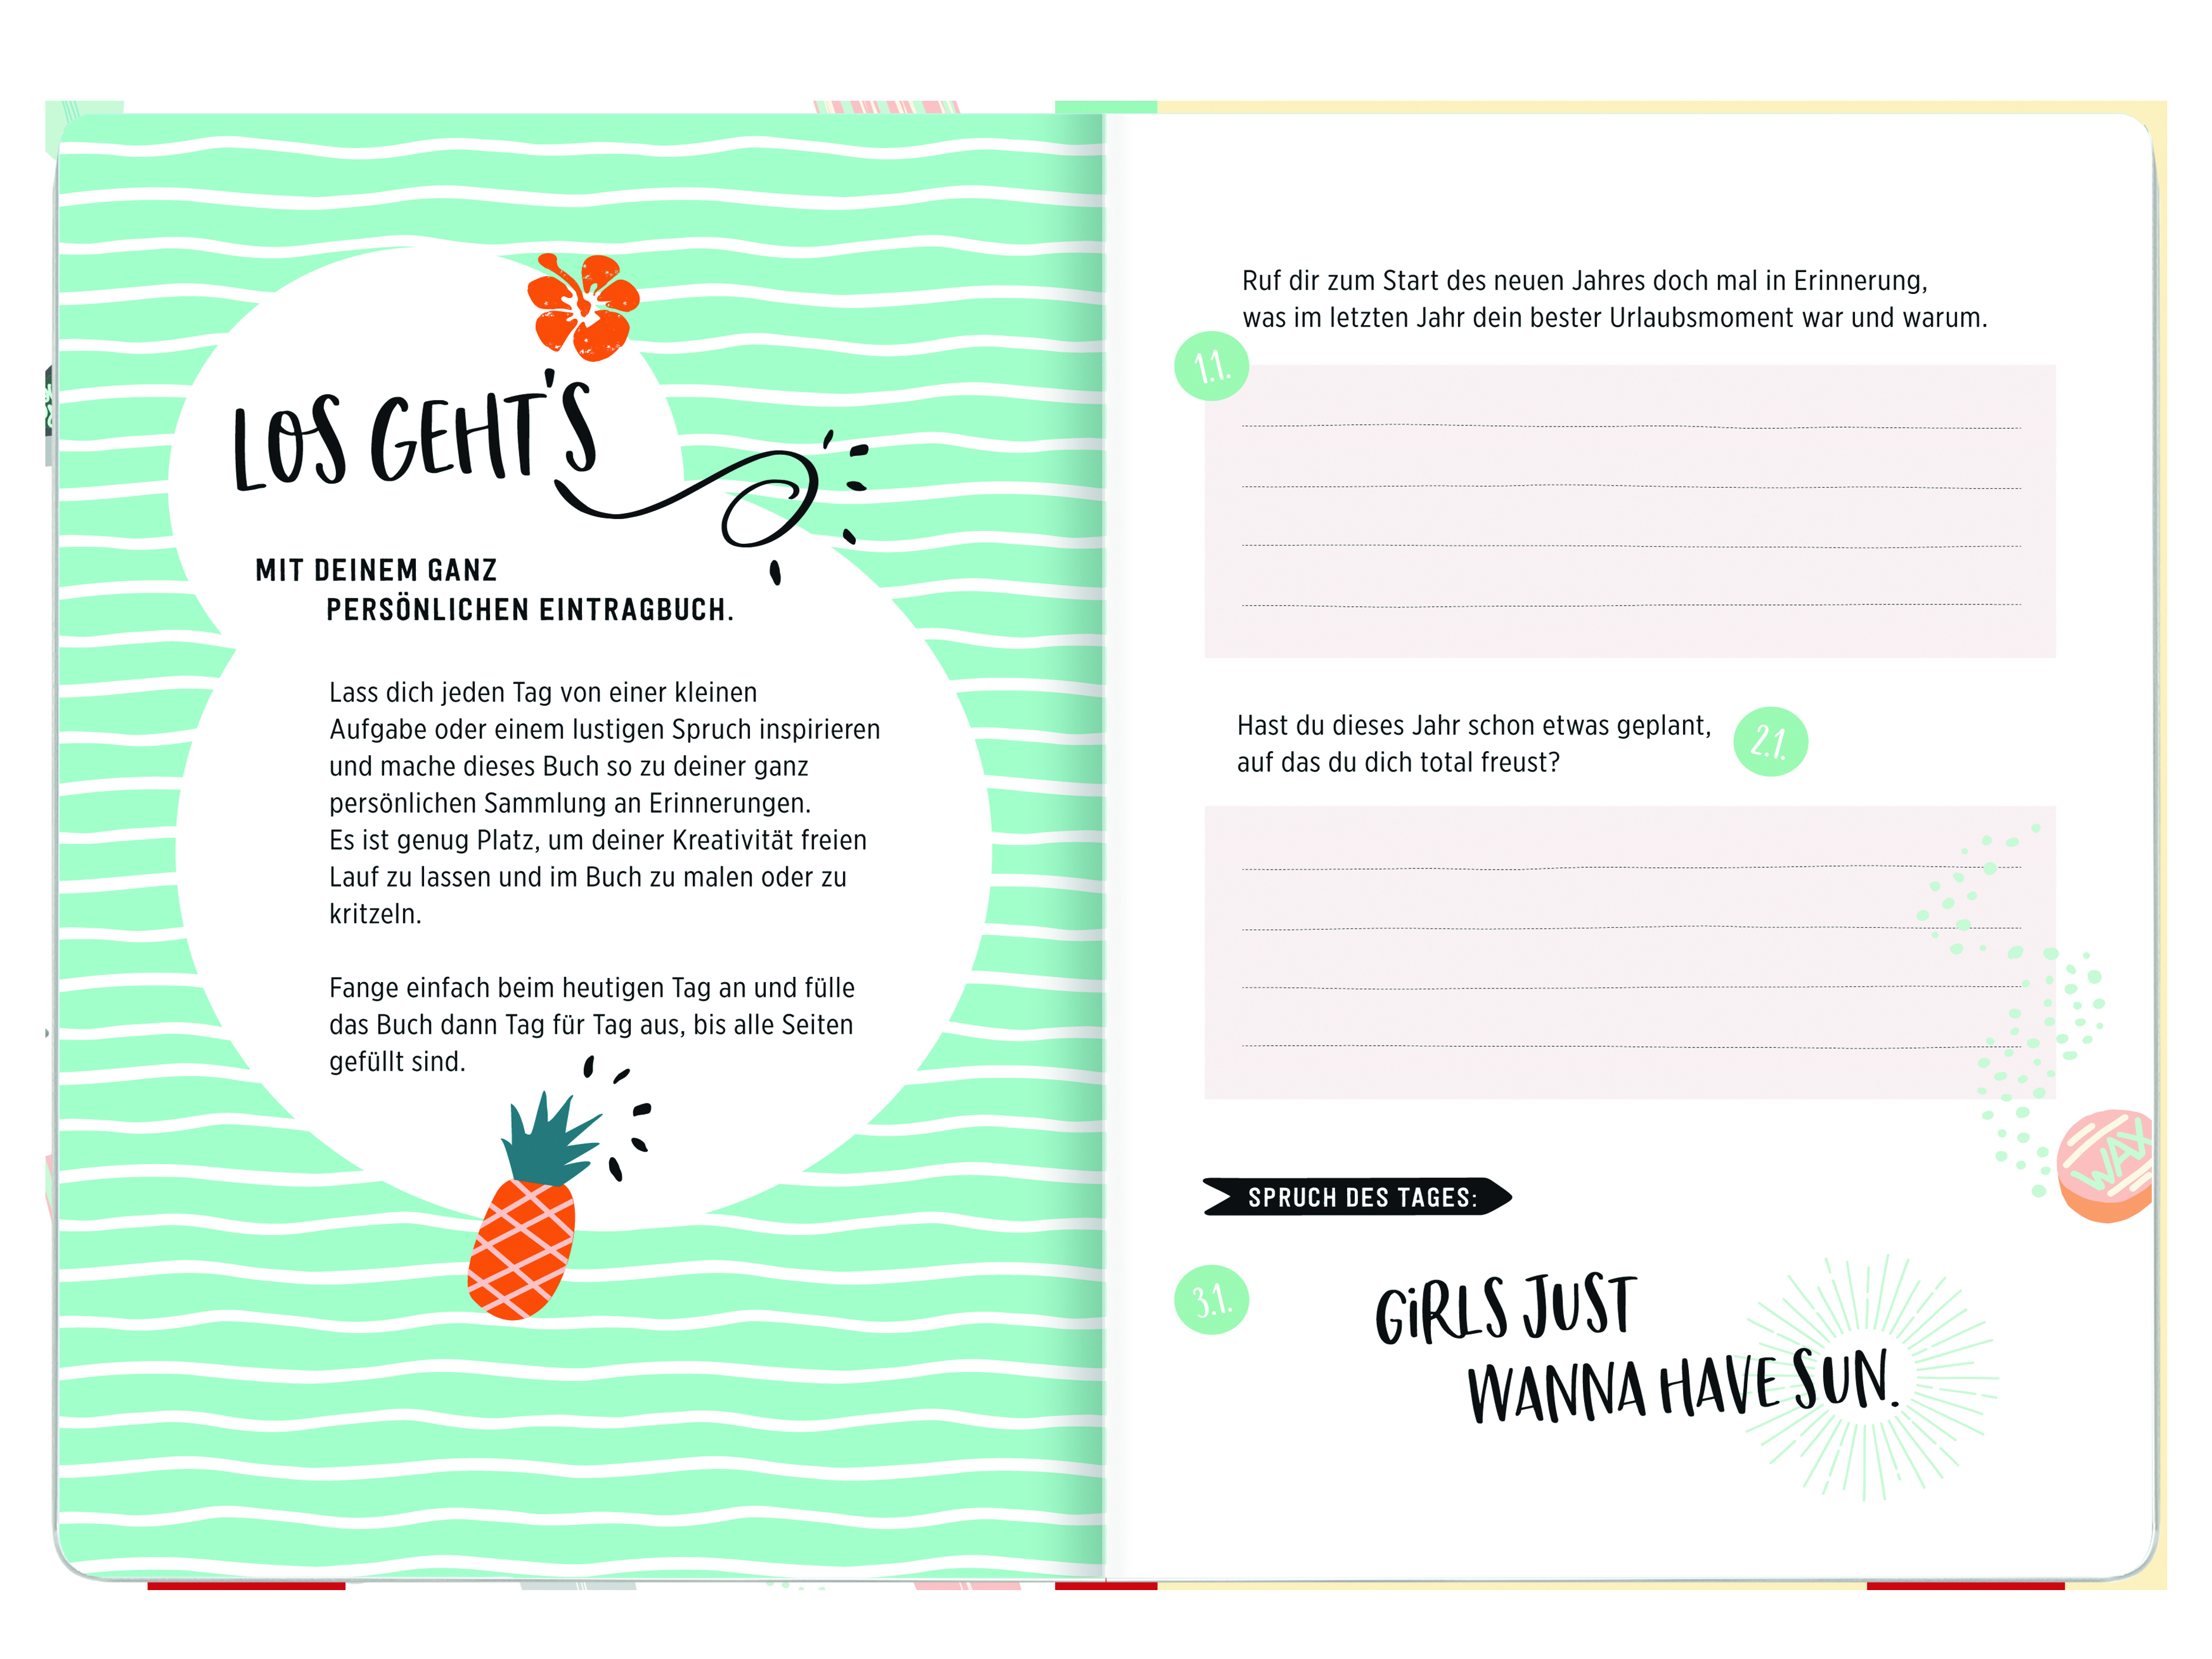 LOS GEHT'S
MIT DEINEM GANZ
PERSÖNLICHEN EINTRAGBUCH.
Lass dich jeden Tag von einer kleinen
Aufgabe oder einem lustigen Spruch inspirieren
und mache dieses Buch so zu deiner ganz
persönlichen Sammlung an Erinnerungen.
Es ist genug Platz, um deiner Kreativität freien
Lauf zu lassen und im Buch zu malen oder zu
kritzeln.
Fange einfach beim heutigen Tag an und fülle
das Buch dann Tag für Tag aus, bis alle Seiten
gefüllt sind.
Ruf dir zum Start des neuen Jahres doch mal in Erinnerung,
was im letzten Jahr dein bester Urlaubsmoment war und warum.
1.1.
Hast du dieses Jahr schon etwas geplant,
auf das du dich total freust?
2.1.
WAX
SPRUCH DES TAGES:
3.1.
GiRLS JUST
WANNA HAVE SUN.